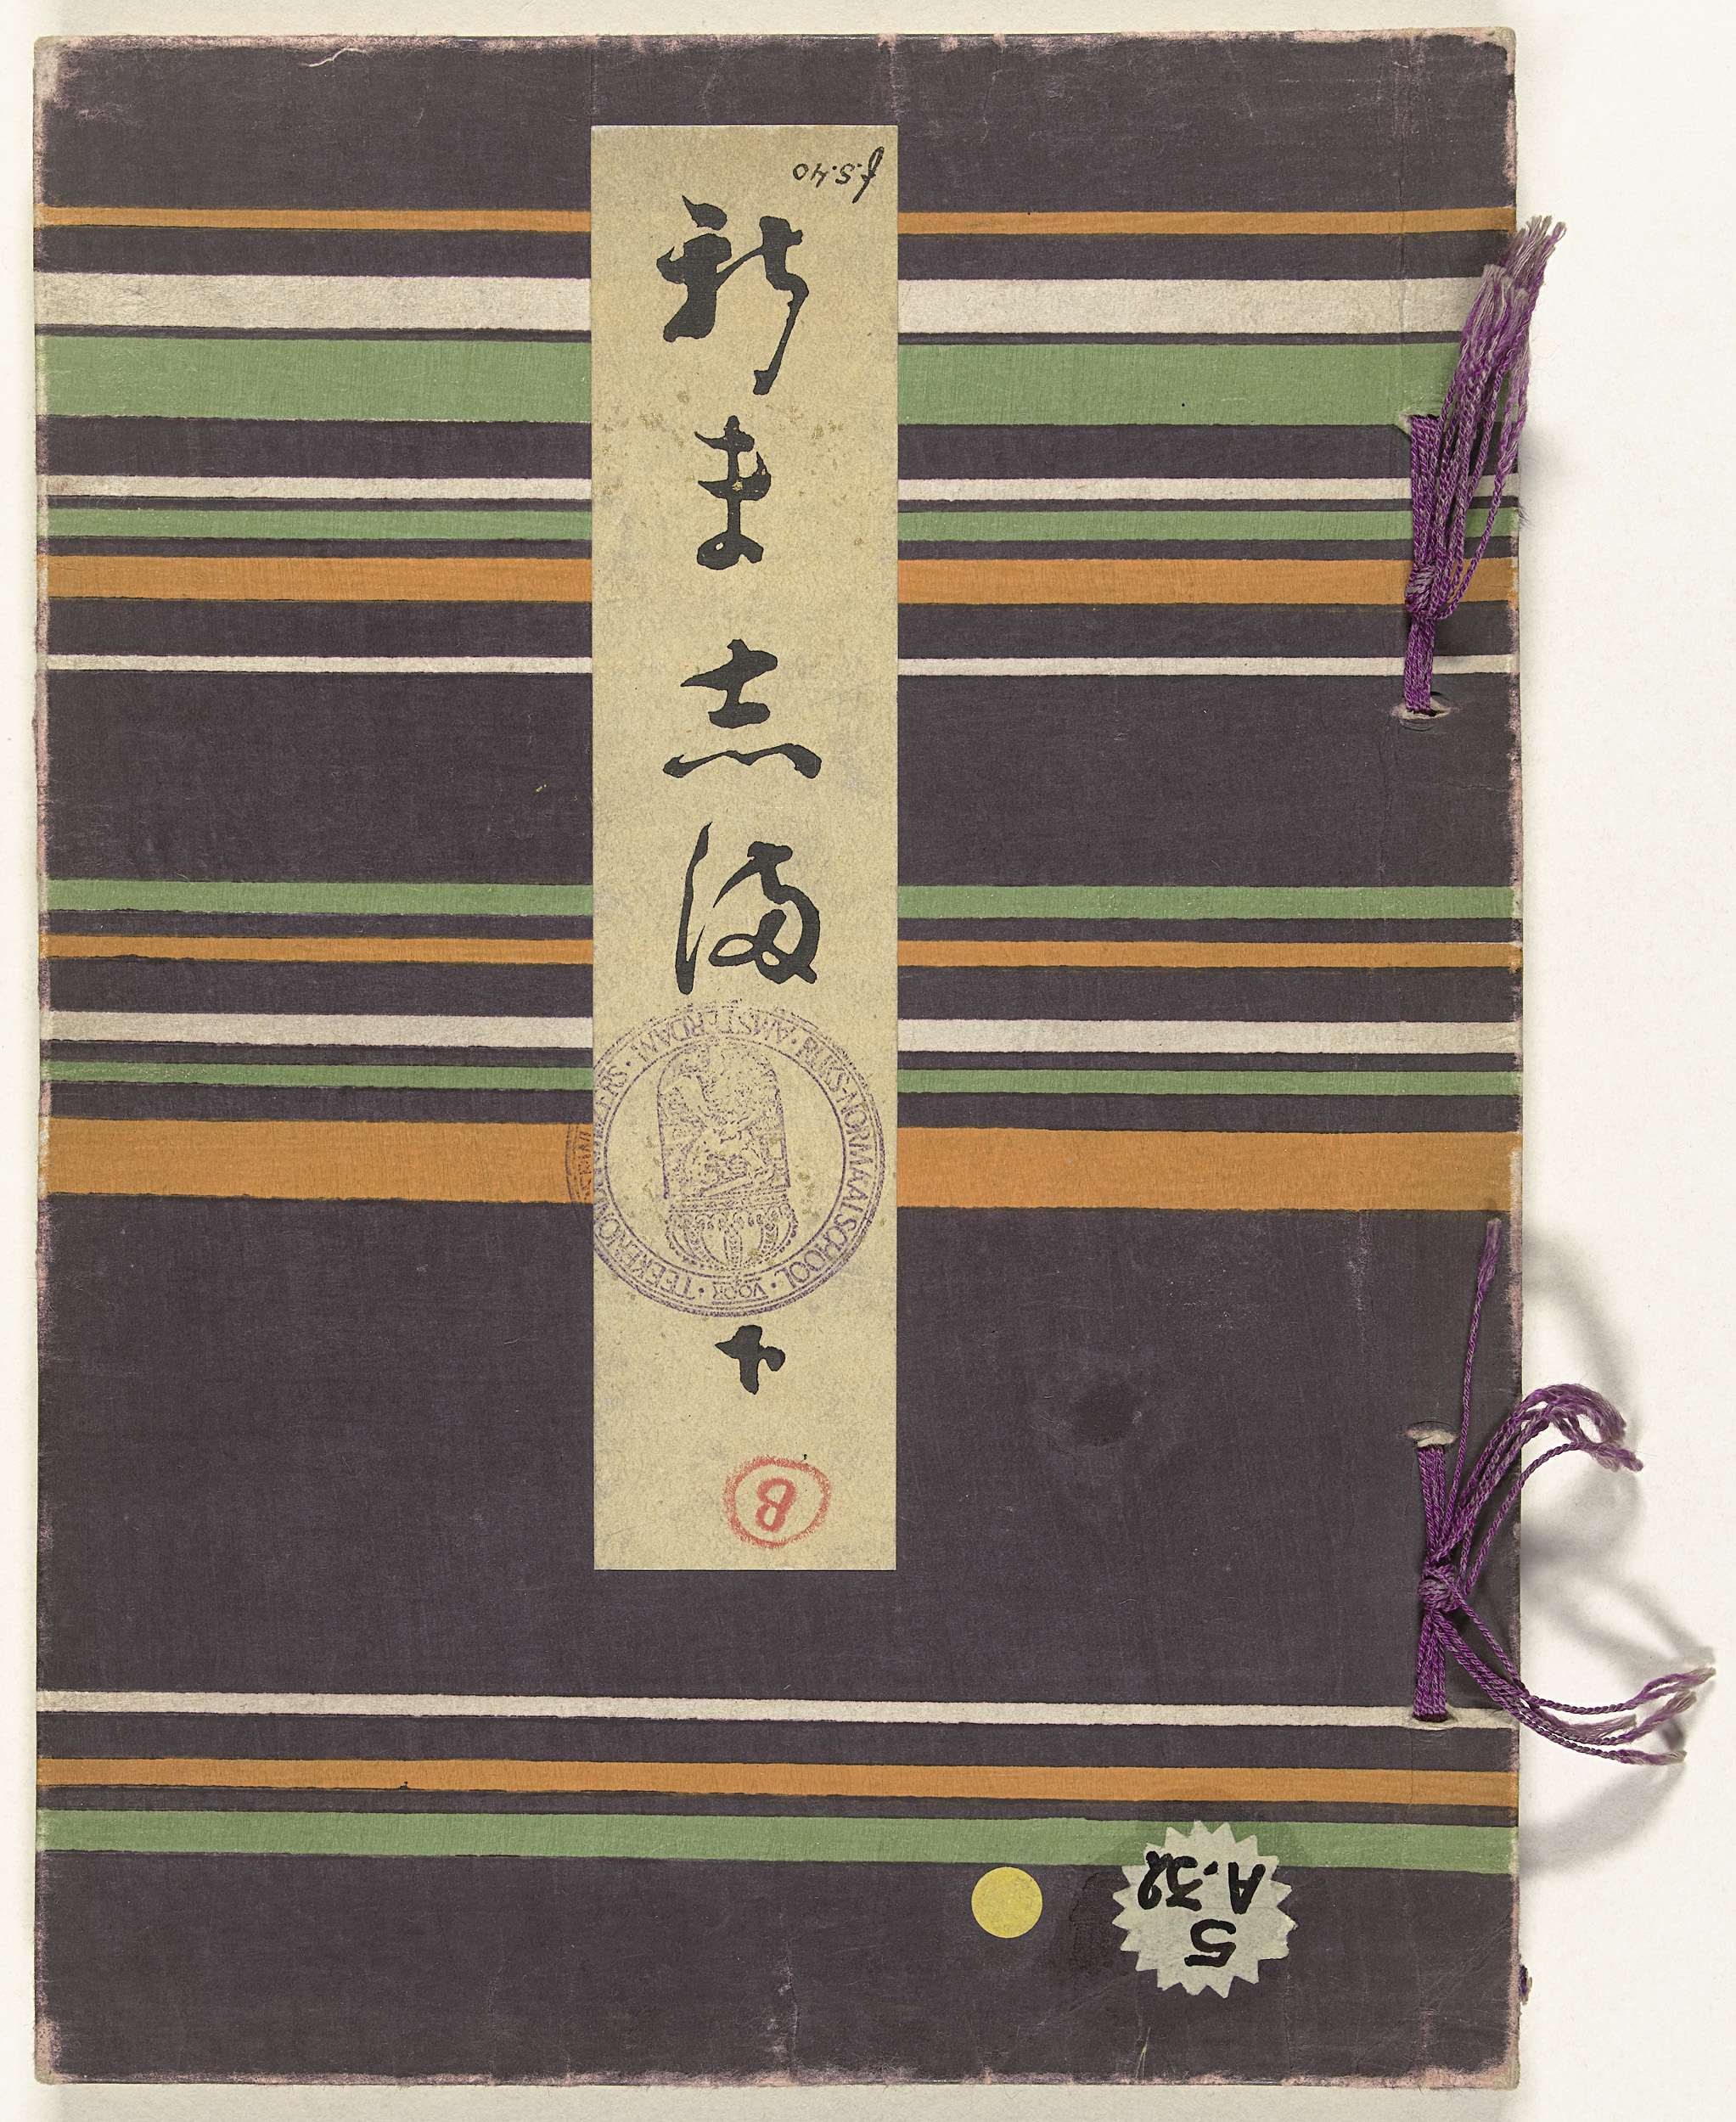 f.5.40
新ま志満
RIJKS-NORMAALSCHOOL · VOOR · TEEKENONDERWIJZERS · AMSTERDAM
8
5
A.32